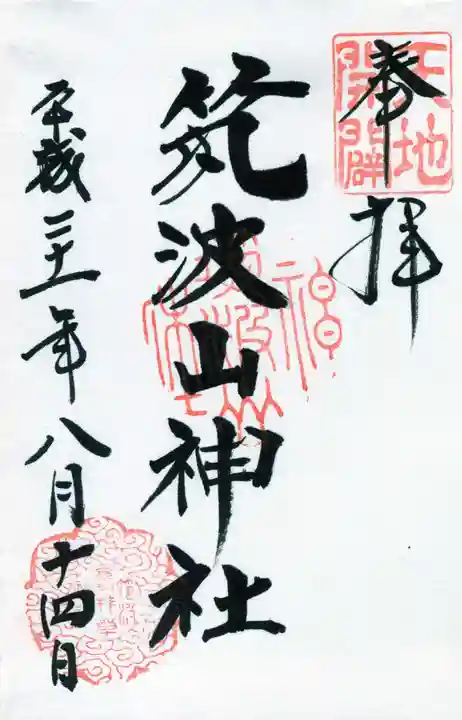 奉拝
天地開闢
筑波山神社
平成二十一年八月十四日